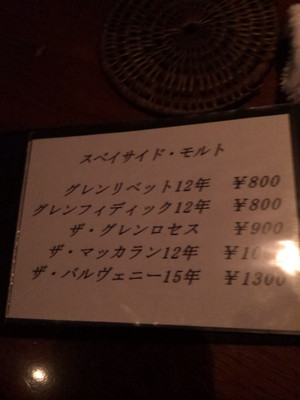 スペイサイド・モルト
グレンリベット12年 ￥800
グレンフィディック12年 ￥800
ザ・グレンロセス ￥900
ザ・マッカラン12年
ザ・バルヴェニー15年 ￥1300